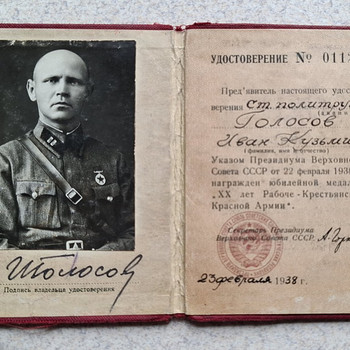 ИГолосов
Подпись владельца удостоверения
УДОСТОВЕРЕНИЕ № 011
Пред'явитель настоящего удос
верения Ст. политру
Голосов
Иван Кузьми
(фамилия, имя и отчество)
Указом Президиума Верховно
Совета СССР от 22 февраля 1938
награжден юбилейной медал
"XX лет Рабоче-Крестьянс
Красной Армии".
Секретарь Президиума
Верховного Совета СССР
23 февраля 1938 г.